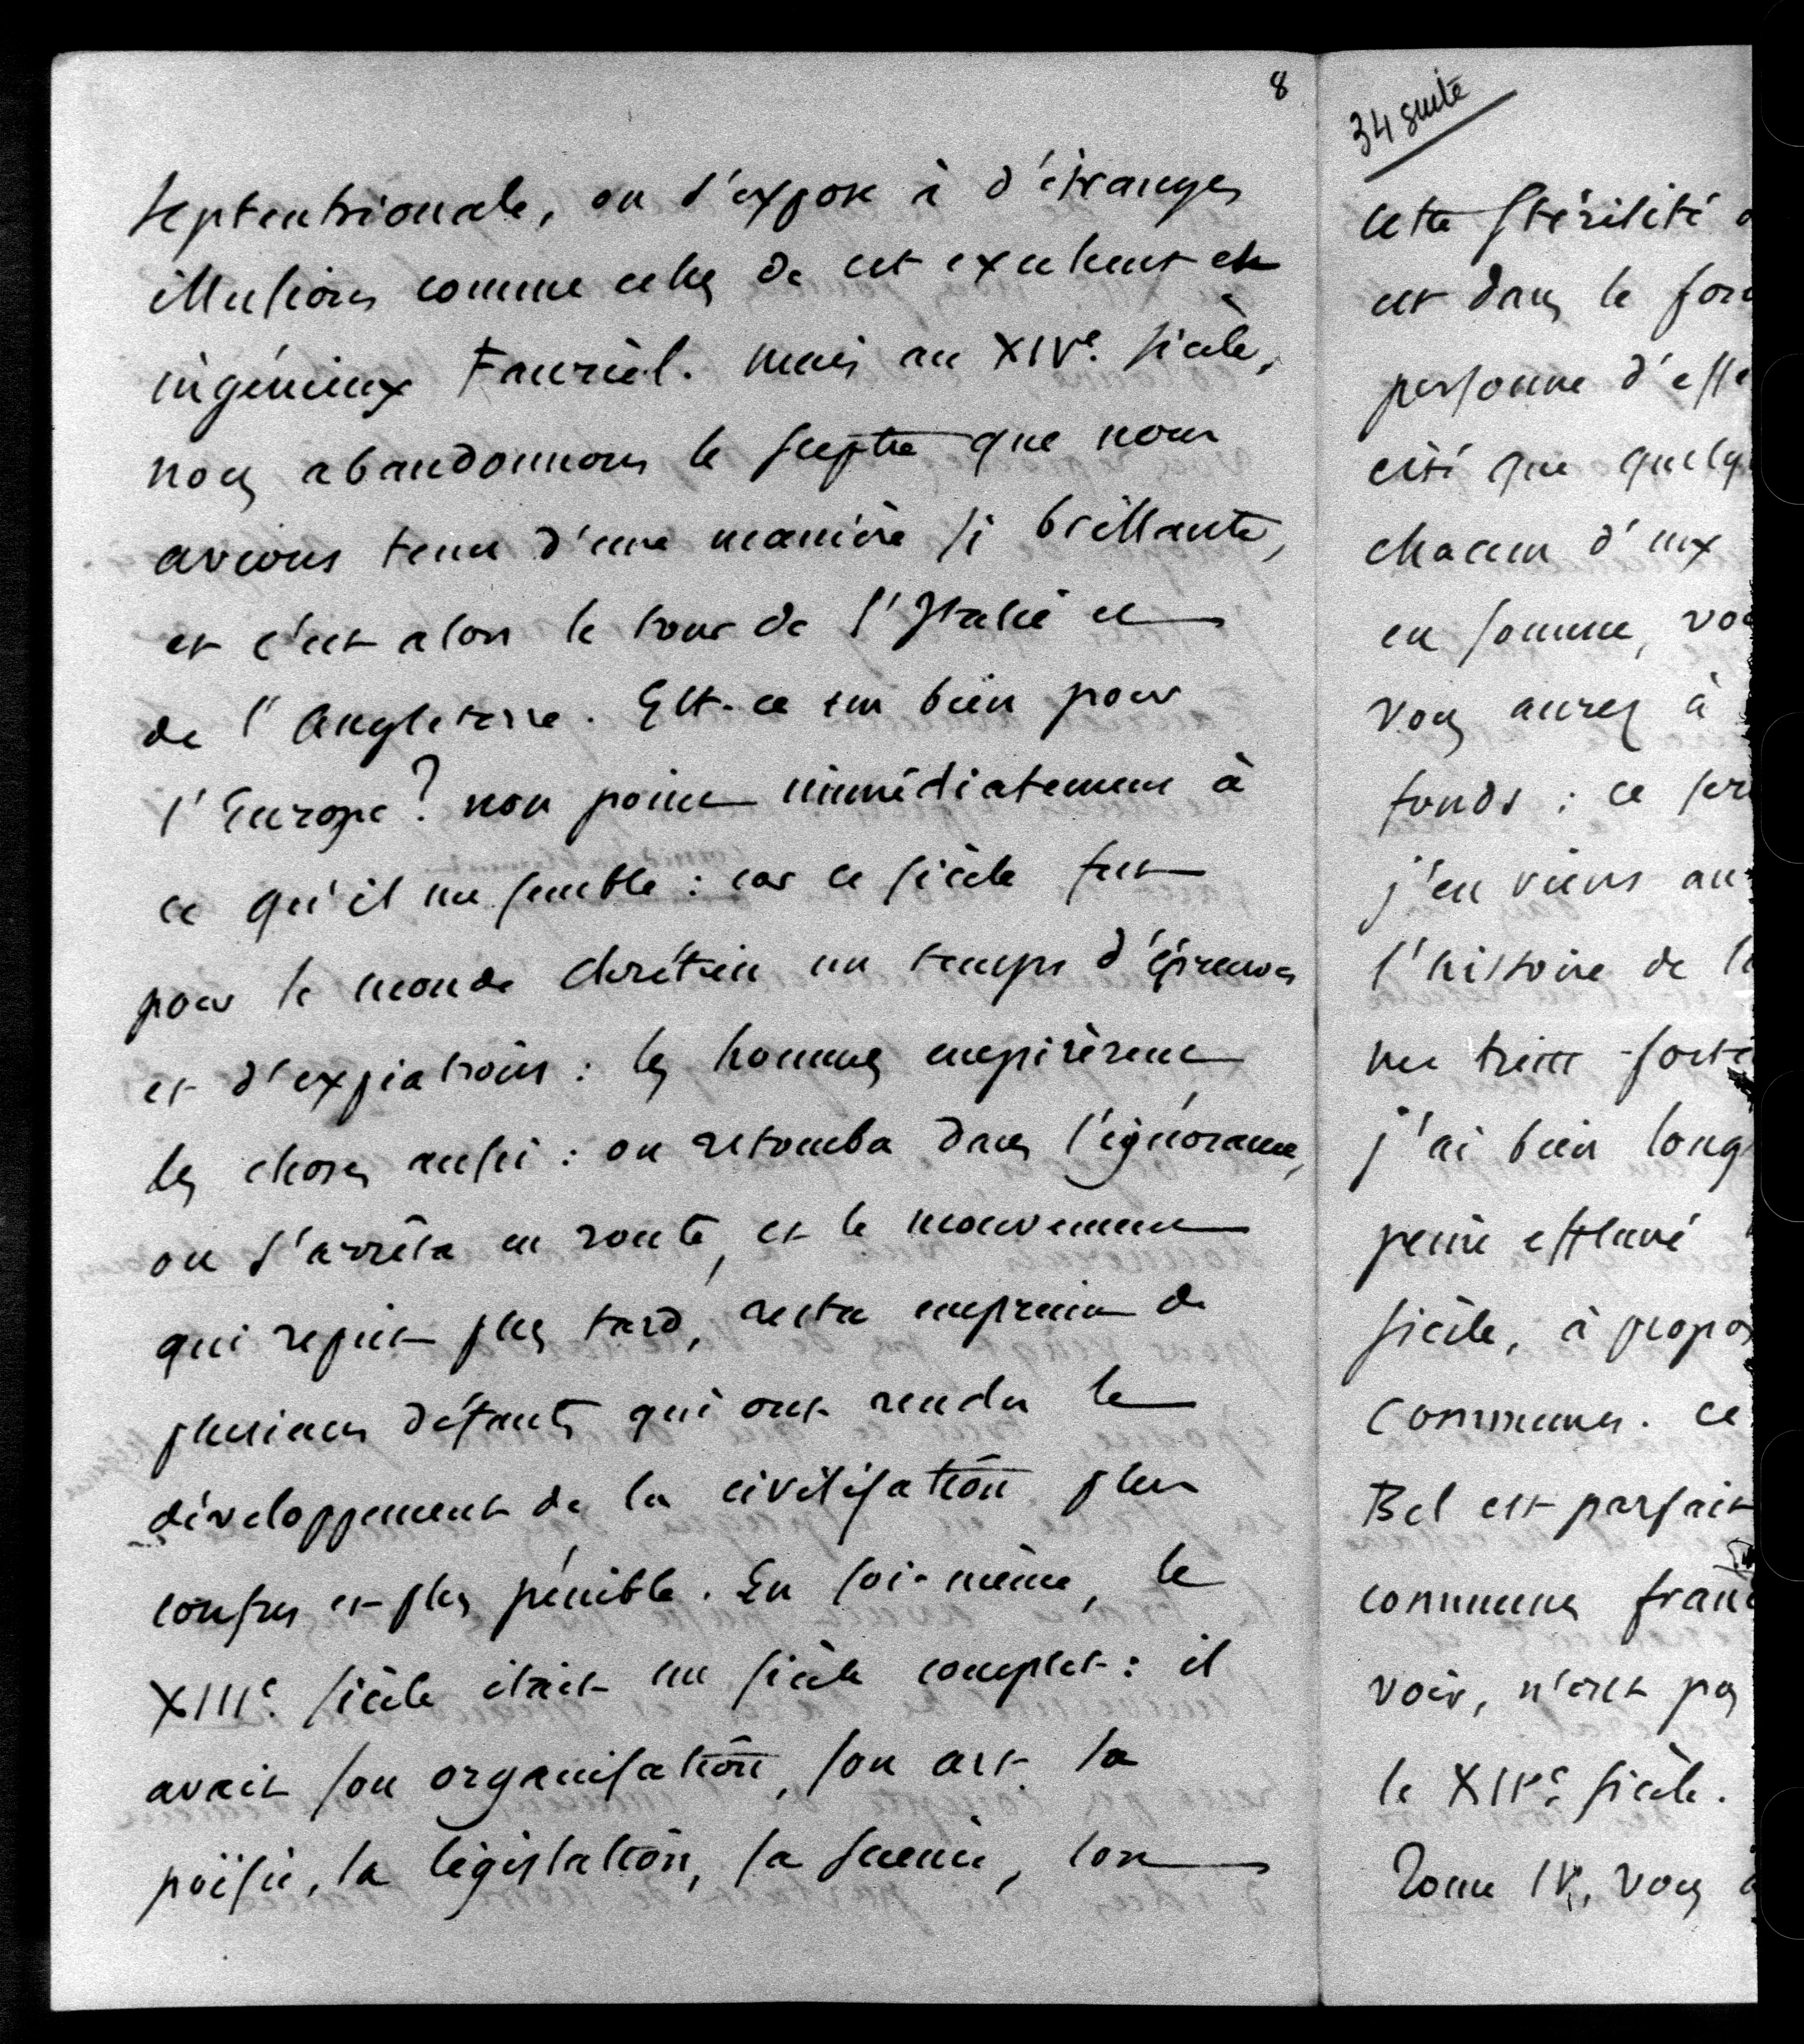 8
septentrionale, on s'expose à d'étranges
illusions comme celles de cet excellent et
ingénieux Fauriel. mais au XIVe. siècle,
nous abandonnons le sceptre que nous
avions tenu d'une manière si brillante,
et c'est alors le tour de l'Italie et
de l'Angleterre. Est-ce un bien pour
l'Europe? non point immédiatement à
ce qu'il me semble : car ce siècle fut
pour le monde chrétien un temps d'épreuves
et d'expiations : les hommes empirèrent,
les choses aussi : on retomba dans l'ignorance,
on s'arrêta en route, et le mouvement
qui reprit plus tard, resta empreint de
plusieurs défauts qui ont rendu le
développement de la civilisation plus
confus et plus pénible. En soi-même, le
XIIIe. siècle était un siècle complet : il
avait son organisation, son art, sa
poësie, sa législation, sa science, son
34 suite
cette stérilité
est dans le
personne d'
cité que
chacun d'eux
en somme,
vous aurez à
fonds : ce
j'en viens
l'histoire de
me tient
j'ai bien
peine effleuré
siècle, à
Communes. ce
Bel est
communes
voir, n'est pas
le XIVe. siècle.
Tome IV, vous